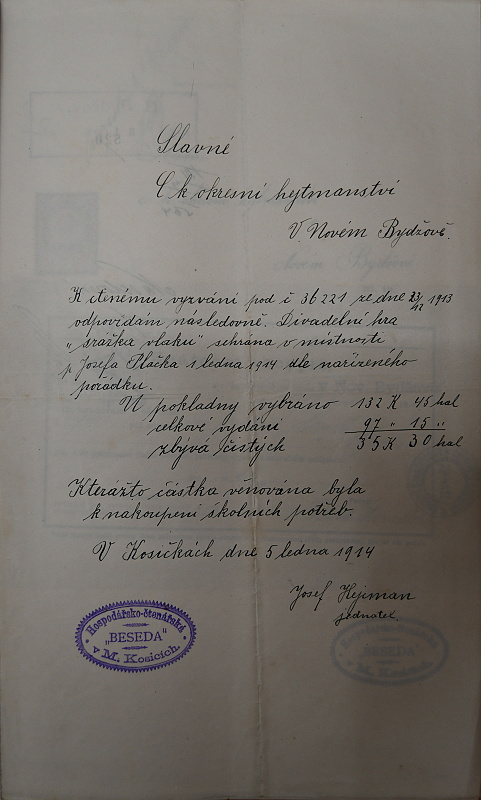 Slavné
C k okresní hejtmanství
V Novém Bydžově.
K ctěnému vyzvání pod č 36221 ze dne 23/12 1913
odpovídám následovně. Divadelní hra
„srážka vlaku" sehrána v místnosti
p Josefa Plačka 1 ledna 1914 dle nařízeného
pořádku.
U pokladny vybráno 132 K 45 hal
celkové vydání 97 „ 15 „
zbývá čistých 35 K 30 hal
Kterážto částka věnována byla
k nakoupení školních potřeb.
V Kosičkách dne 5 ledna 1914
Josef Hejman
jednatel.
Hospodářsko-čtenářská
„BESEDA"
v M. Kosicích.